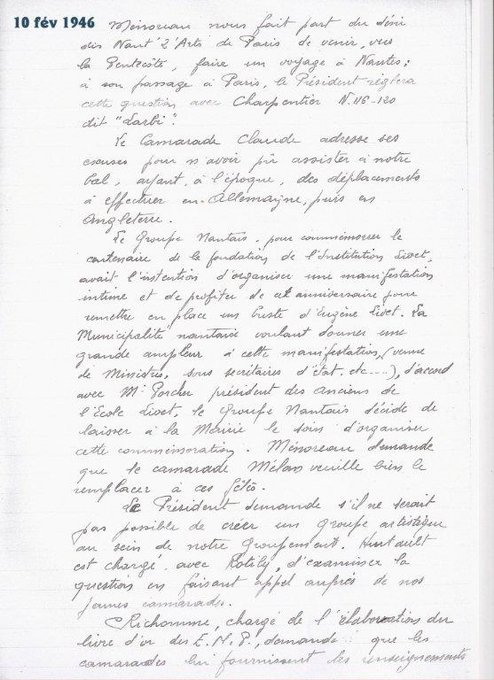 10 fév 1946
Ménoreau nous fait part du désir
des Nant' Z'Arts de Paris de venir, vers
la Pentecôte, faire un voyage à Nantes ;
à son passage à Paris, le Président règlera
cette question avec Charpentier N.46-120
dit "Larbi".
Le Camarade Claude adresse ses
excuses pour n'avoir pû assister à notre
bal, ayant, à l'époque, des déplacements
à effectuer en Allemagne, puis en
Angleterre.
Le Groupe Nantais, pour commémorer le
centenaire de la fondation de l'Institution Livet,
avait l'intention d'organiser une manifestation
intime et de profiter de cet anniversaire pour
remettre en place un buste d'Eugène Livet. La
Municipalité nantaise voulant donner une
grande ampleur à cette manifestation, (venue
de Ministres, sous secrétaires d'état, etc....), d'accord
avec Mr Porcher, président des anciens de
l'Ecole Livet, le Groupe Nantais décide de
laisser à la Mairie le soin d'organiser
cette commémoration. Ménoreau demande
que le camarade Mélan veuille bien le
remplacer à ces fêtes.
Le Président demande s'il ne serait
pas possible de créer un groupe artistique
au sein de notre groupement. Huteult
est chargé avec Rotily, d'examiner la
question en faisant appel auprès de nos
jeunes camarades.
Richomme, chargé de l'élaboration du
livre d'or des E.N.P., demande que les
camarades lui fournissent les renseignements